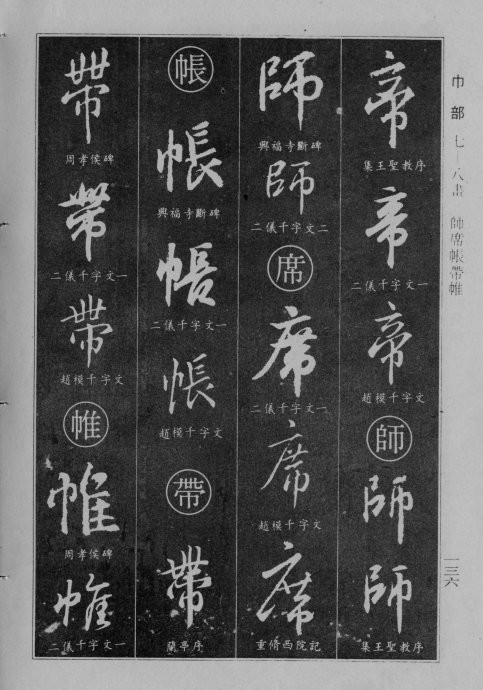 巾部 七—八畫 師席帳帶帷
一三六
帝
集王聖教序
帝
二儀千字文一
帝
趙模千字文
師
師
師
集王聖教序
師
興福寺斷碑
師
二儀千字文二
席
席
二儀千字文一
席
趙模千字文
席
重脩西院記
帳
帳
興福寺斷碑
帳
二儀千字文一
帳
趙模千字文
帶
帶
蘭亭序
帶
周孝侯碑
帶
二儀千字文一
帶
趙模千字文
帷
帷
周孝侯碑
帷
二儀千字文一